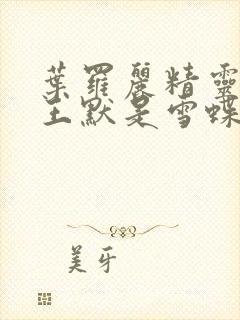 葉羅麗精靈
王默是雪蝶
美牙